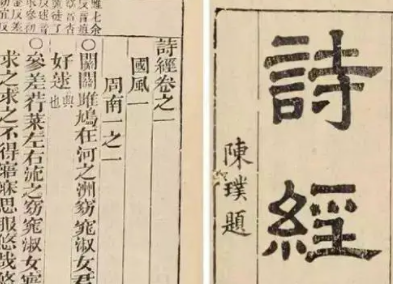 詩經
陳璞題
詩經卷之一
國風一
周南一之一
○關關雎鳩在河之洲窈窕淑女君
好逑興也
○參差荇菜左右流之窈窕淑女寤
求之求之不得寤寐思服悠哉悠
雎七余